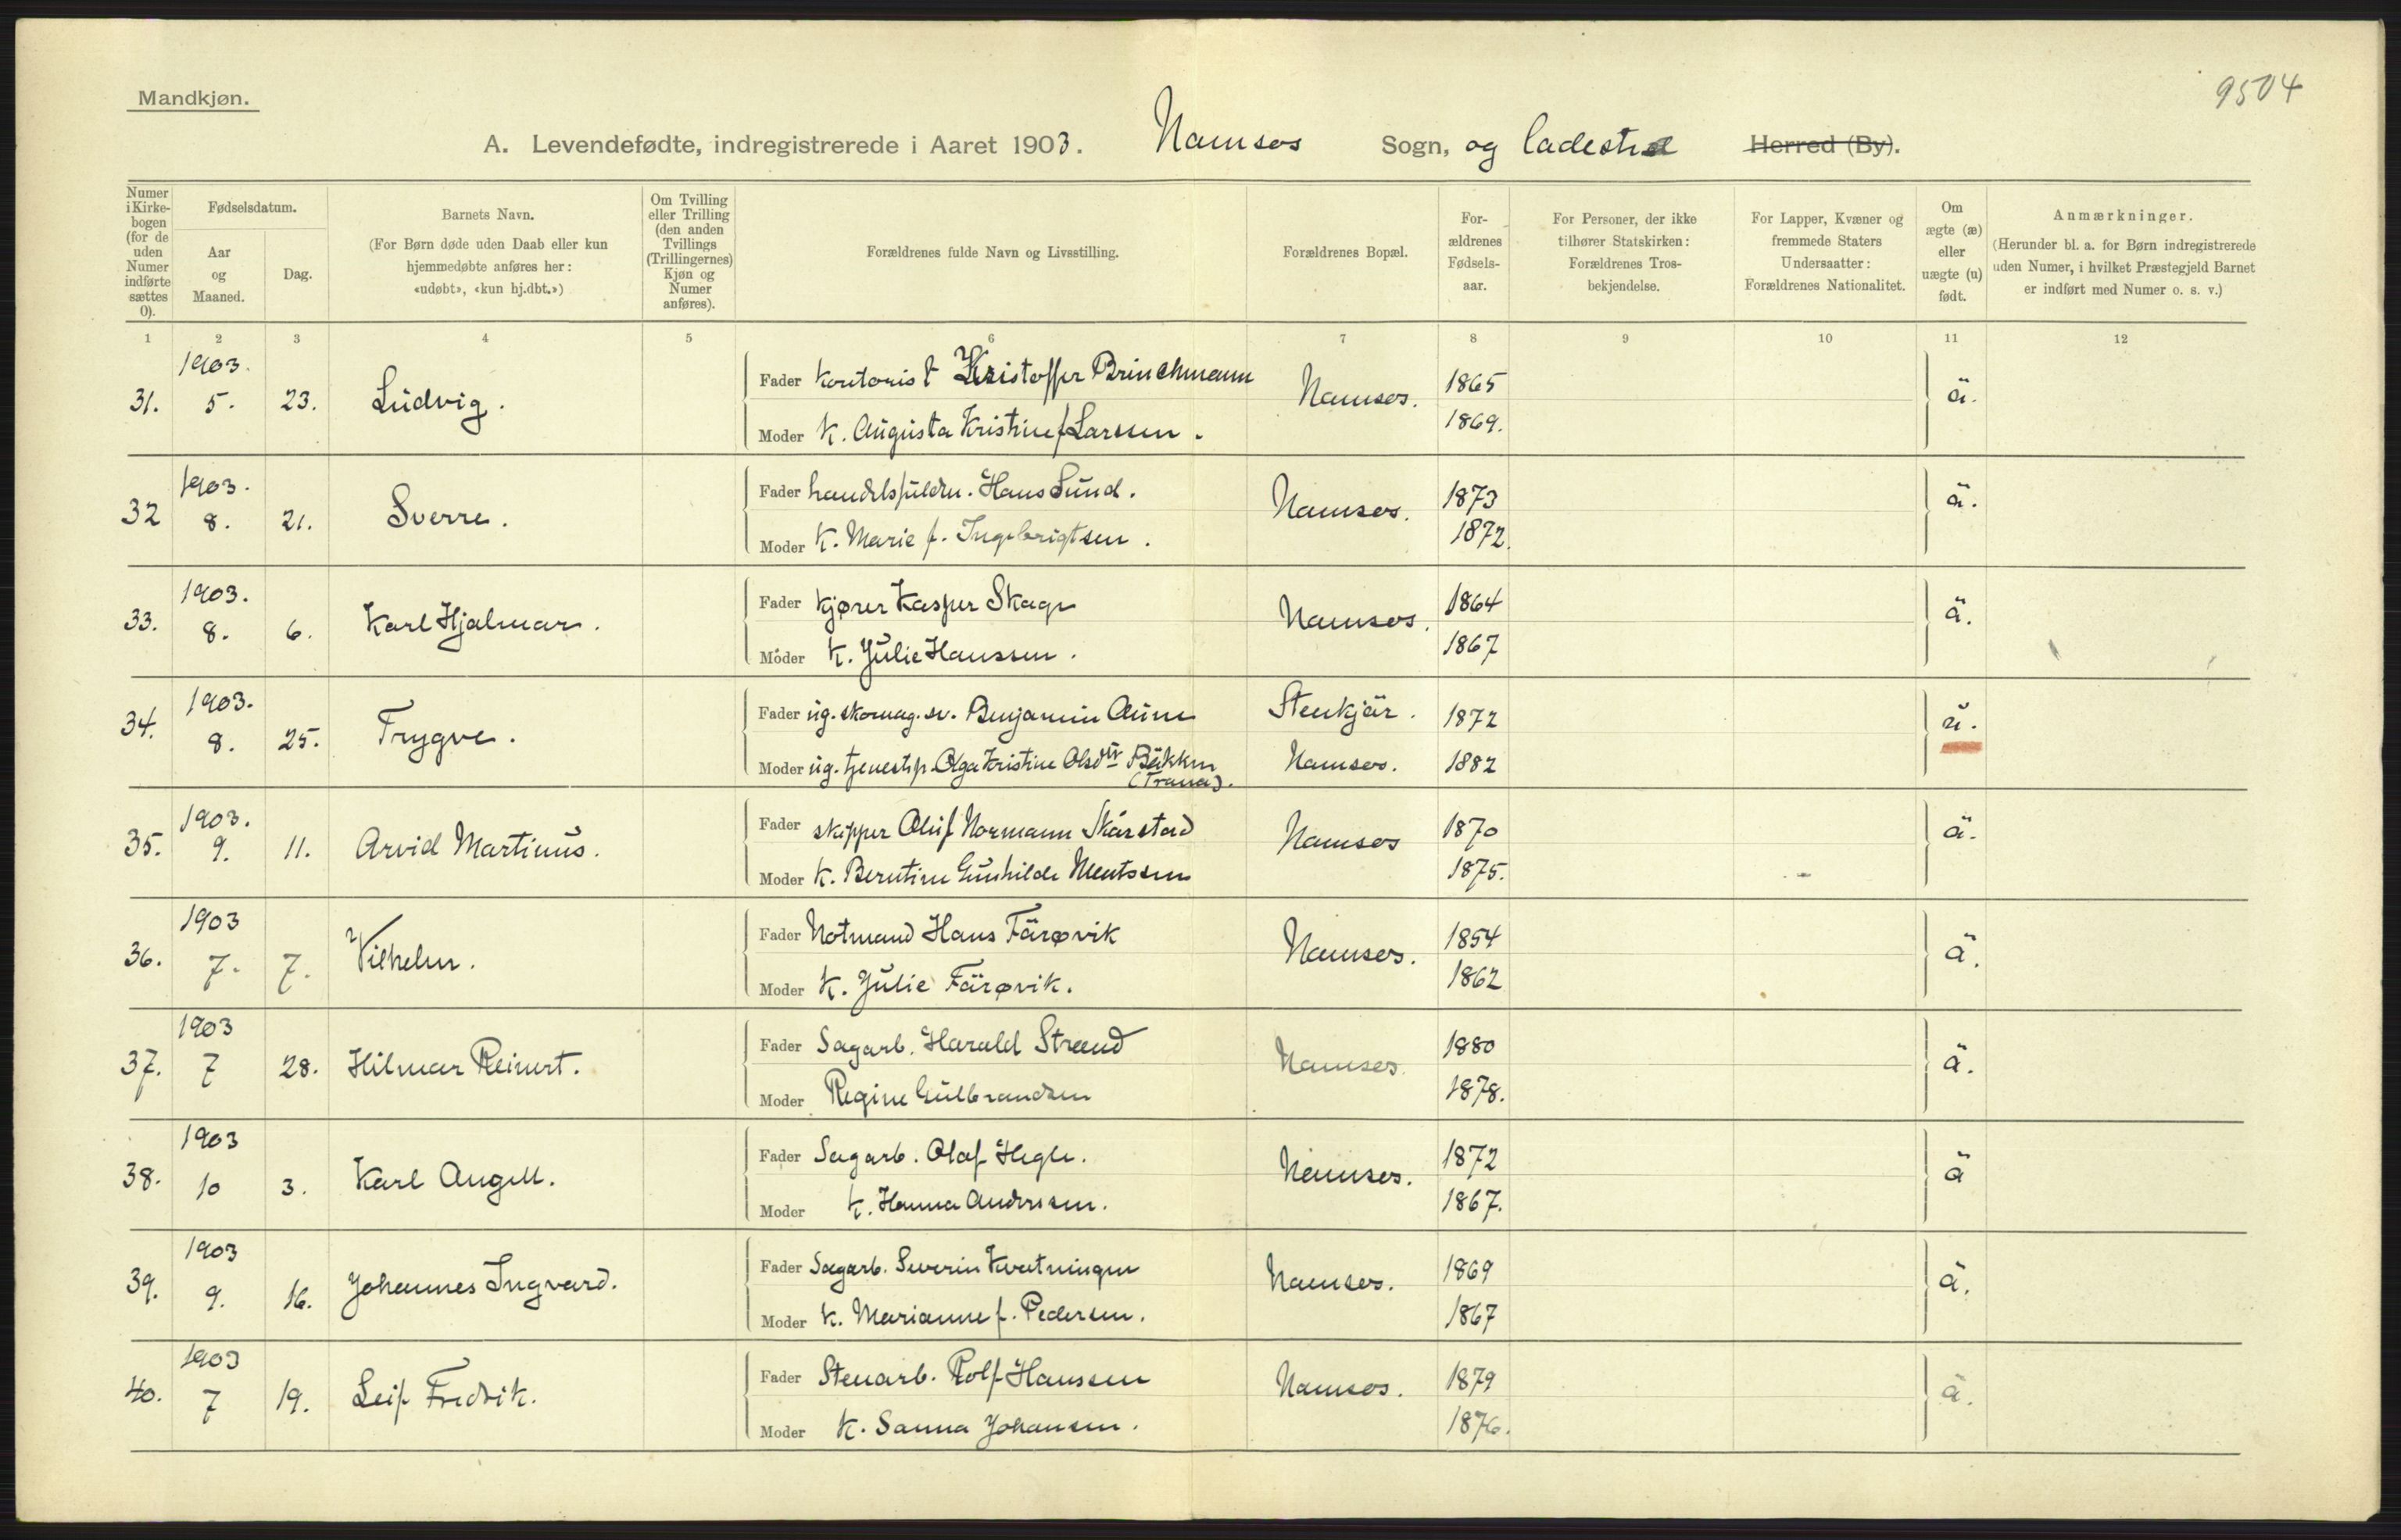 9504
Mandkjøn.
A. Levendefødte, indregistrerede i Aaret 1903. Namsos Sogn, og ladested Herred (By).
Numer i Kirkebogen (for de uden Numer indførte sættes 0).
Fødselsdatum.
Aar og Maaned.
Dag.
Barnets Navn.
(For Børn døde uden Daab eller kun hjemmedøbte anføres her: «udøbt», «kun hj.dbt.»)
Om Tvilling eller Trilling (den anden Tvillings (Trillingernes) Kjøn og Numer anføres).
Forældrenes fulde Navn og Livsstilling.
Forældrenes Bopæl.
For-ældrenes Fødsels-aar.
For Personer, der ikke tilhører Statskirken: Forældrenes Tros-bekjendelse.
For Lapper, Kvæner og fremmede Staters Undersaatter: Forældrenes Nationalitet.
Om ægte (æ) eller uægte (u) født.
Anmærkninger.
(Herunder bl. a. for Børn indregistrerede uden Numer, i hvilket Præstegjeld Barnet er indført med Numer o. s. v.)
1 2 3 4 5 6 7 8 9 10 11 12
31. 1903. 5. 23. Ludvig. Fader kontorist Kristoffer Brinchmann Namsos. 1865 ä.
Moder K. Augusta Kristine f. Larssen. 1869.
32 1903. 8. 21. Sverre. Fader handelsfuldm. Hans Lund. Namsos. 1873 ä.
Moder K. Marie f. Ingebrigtsen. 1872.
33. 1903. 8. 6. Karl Hjalmar. Fader kjører Kasper Skage Namsos. 1864 ä.
Moder K. Julie Hanssen. 1867
34. 1903. 8. 25. Trygve. Fader ug. skomag. sv. Benjamin Aune Stenkjär. 1872 u.
Moder ug. tjenestp. Olga Kristine Olsdtr Bäkken (Trana). Namsos. 1882
35. 1903. 9. 11. Arvid Martinus. Fader skipper Oluf Normann Skarstad Namsos 1870 ä.
Moder K. Berntine Gunhilde Mentssen 1875.
36. 1903 7. 7. Vilhelm. Fader Notmand Hans Färøvik Namsos. 1854 ä.
Moder K. Julie Färøvik. 1862
37. 1903 7 28. Hilmar Reinert. Fader Sagarb. Harald Strand Namsos. 1880 ä.
Moder Regine Gulbrandsen 1878.
38. 1903 10 3. Karl Angell. Fader Sagarb. Olaf Hegle. Namsos. 1872 ä
Moder K. Hanna Anderssen. 1867.
39. 1903 9. 16. Johannes Ingvard. Fader Sagarb. Severin Kvatningen Namsos. 1869 ä.
Moder K. Marianne f. Pedersen. 1867
40. 1903 7 19. Leif Fredrik. Fader Stenarb. Rolf Hanssen Namsos. 1879 ä.
Moder K. Sanna Johansen. 1876.